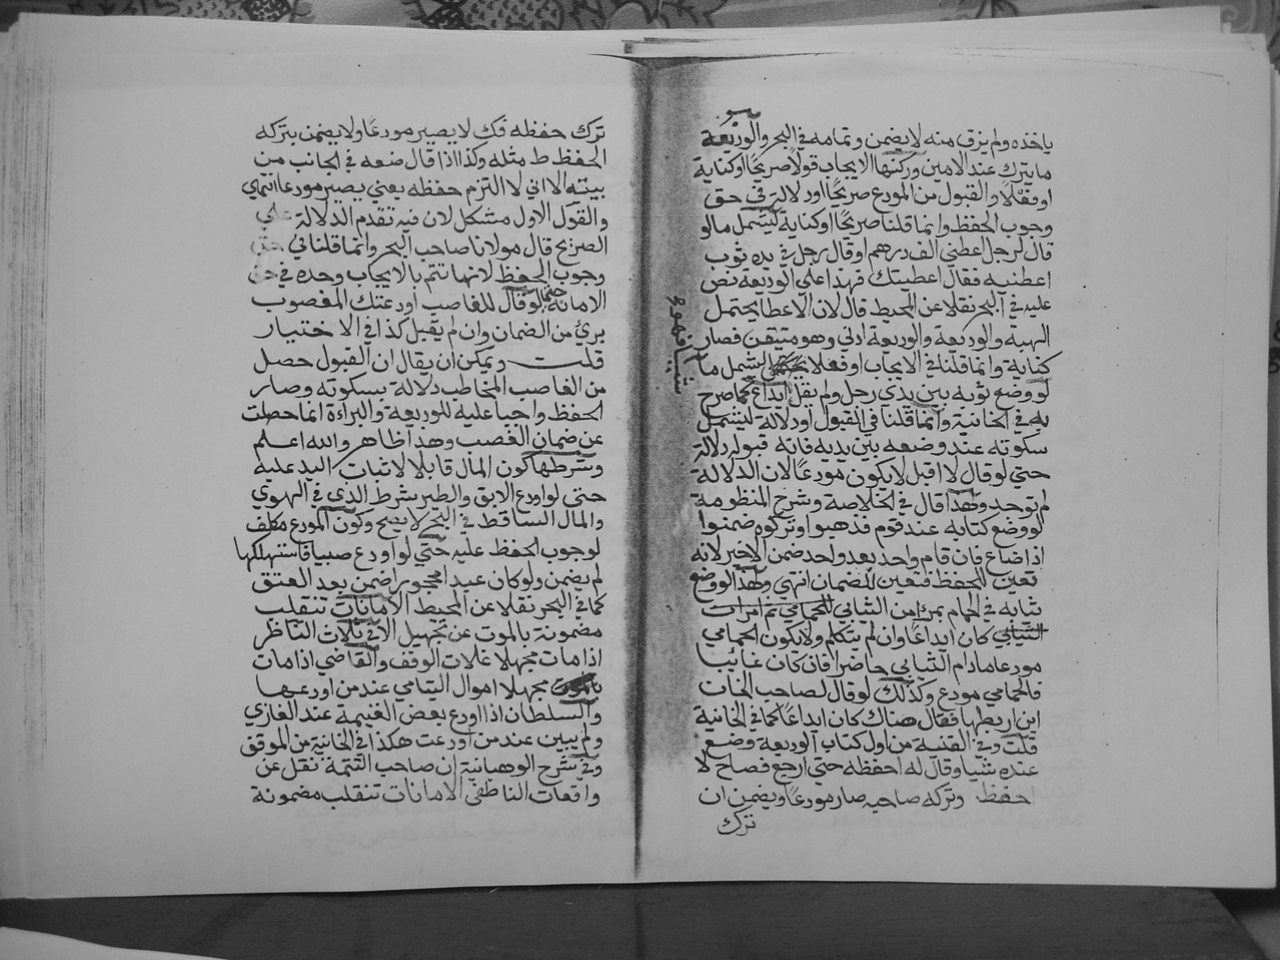 ياخذه ولم يزق منه لا يضمن وتمامه في البحر والوديعة
ما يترك عند الامين وركنها الايجاب قولا صريحا او كناية
او فعلا والقبول من المودع صريحا او دلالة في حق
وجوب الحفظ وانما قلنا صريحا او كناية ليشمل ما لو
قال لرجل اعطني الف درهم او قال رجل في يده ثوب
اعطنيه فقال اعطيتك فهذا علي الوديعة نص
عليه في البحر نقلا عن المحيط قال لان الاعطا يحتمل
الهبة والوديعة والوديعة ادني وهو متيقن فصار
كناية وانما قلنا في الايجاب او فعلا ليشمل ما
لو وضع ثوبه بين يدي رجل ولم يقل ايداع كما صرح
به في الخانية وانما قلنا في القبول او دلالة ليشمل
سكوته عند وضعه بين يديه فانه قبول دلالة
حتي لو قال لا اقبل لا يكون مودعا لان الدلالة
لم توجد ولهذا قال في الخلاصة وشرح المنظومة
لو وضع كتابه عند قوم فذهبوا وتركوه ضمنوا
اذا ضاع فان قام واحد بعد واحد ضمن الاخير لانه
تعين للحفظ فتعين للضمان انتهي ولهذا لو وضع
ثيابه في الحمام بمراي من الثيابي
الثيابي كان ايداعا وان لم يتكلم ولا يكون الحمامي
مودعا ما دام الثيابي حاضرا فان كان غائبا
فالحمامي مودع وكذلك لو قال لصاحب الخان
اين اربطها فقال هناك كان ايداعا كما في الخانية
قلت وفي القنية من اول كتاب الوديعة وضع
عنده شيا وقال له احفظه حتي ارجع فصاح لا
احفظ وتركه صاحبه صار مودعا ويضمن ان
ترك
ترك حفظه فك لا يصير مودعا ولا يضمن بتركه
الحفظ ط مثله وكذا اذا قال ضعه في الجانب من
بيته الا اني لا التزم حفظه يعني يصير مودعا انتهي
والقول الاول مشكل لان فيه تقدم الدلالة علي
الصريح قال مولانا صاحب البحر وانما قلنا في حق
وجوب الحفظ لانها تتم بالايجاب وحده في حق
الامانة حتي لو قال للغاصب اودعتك المغصوب
بري من الضمان وان لم يقبل كذا في الاختيار
قلت ويمكن ان يقال ان القبول حصل
من الغاصب المخاطب دلالة بسكوته وصار
الحفظ واجبا عليه للوديعة والبراءة انما حصلت
عن ضمان الغصب وهذا ظاهر والله اعلم
وشرطها كون المال قابلا لاثبات اليد عليه
حتي لو اودع الابق والطير الذي في الهوي
والمال الساقط في البحر لا يصح وكون المودع مكلف
لوجوب الحفظ عليه حتي لو اودع صبيا فاستهلكها
لم يضمن ولو كان عبدا محجورا ضمن بعد العتق
كما في البحر نقلا عن المحيط الامانات تنقلب
مضمونة بالموت عن تجهيل الا في ثلاث الناظر
اذا مات مجهلا غلات الوقف والقاضي اذا مات
مجهلا اموال اليتامي عند من اودعها
والسلطان اذا اودع بعض الغنيمة عند الغازي
ولم يبين عند من اودعت هكذا في الخانية من الوقف
وفي شرح الوهبانية ان صاحب التتمة نقل عن
واقعات الناطفي الامانات تنقلب مضمونة